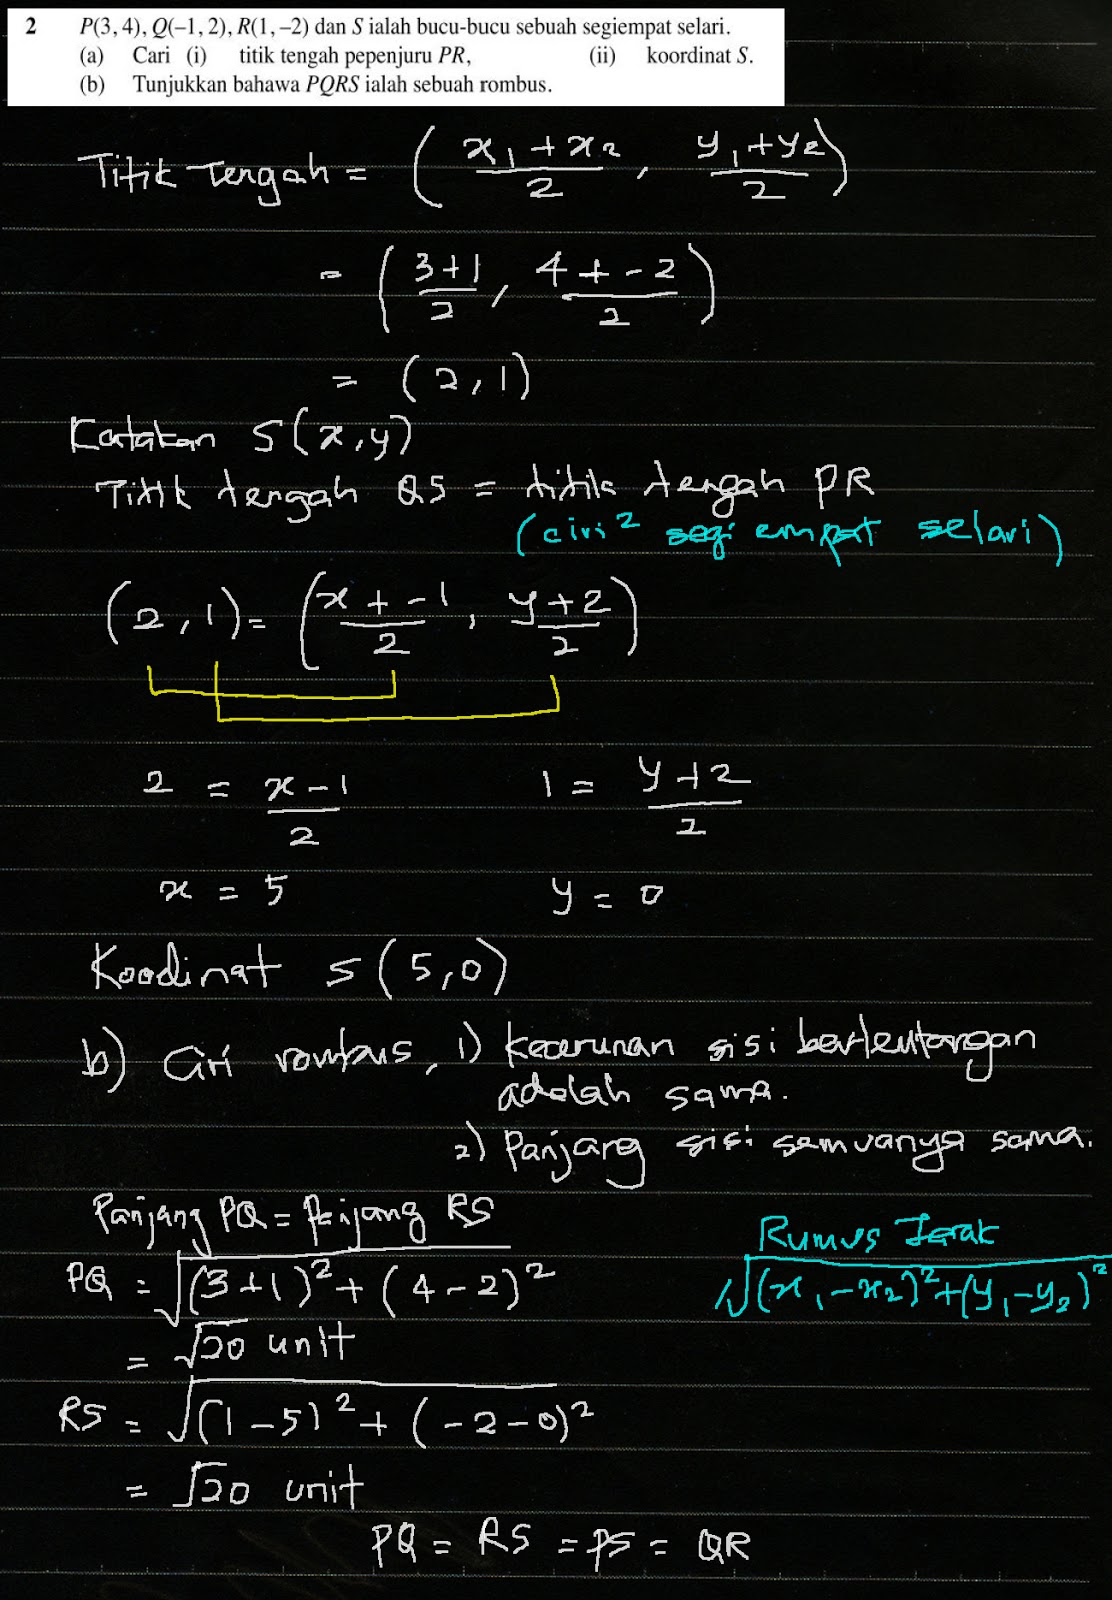 2 P(3, 4), Q(–1, 2), R(1, –2) dan S ialah bucu-bucu sebuah segiempat selari.
(a) Cari (i) titik tengah pepenjuru PR, (ii) koordinat S.
(b) Tunjukkan bahawa PQRS ialah sebuah rombus.
Titik Tengah = ( (x₁ + x₂)/2 , (y₁ + y₂)/2 )
= ( (3+1)/2 , (4 + -2)/2 )
= (2, 1)
Katakan S(x, y)
Titik tengah QS = titik tengah PR
(ciri² segi empat selari)
(2, 1) = ( (x + -1)/2 , (y + 2)/2 )
2 = (x - 1)/2 1 = (y + 2)/2
x = 5 y = 0
Koodinat S(5, 0)
b) Ciri rombus, 1) kecerunan sisi bertentangan
adalah sama.
2) Panjang sisi semuanya sama.
Panjang PQ = Panjang RS
PQ = √((3+1)² + (4-2)²)
Rumus Jarak
√((x₁ - x₂)² + (y₁ - y₂)²)
= √20 unit
RS = √((1-5)² + (-2-0)²)
= √20 unit
PQ = RS = PS = QR